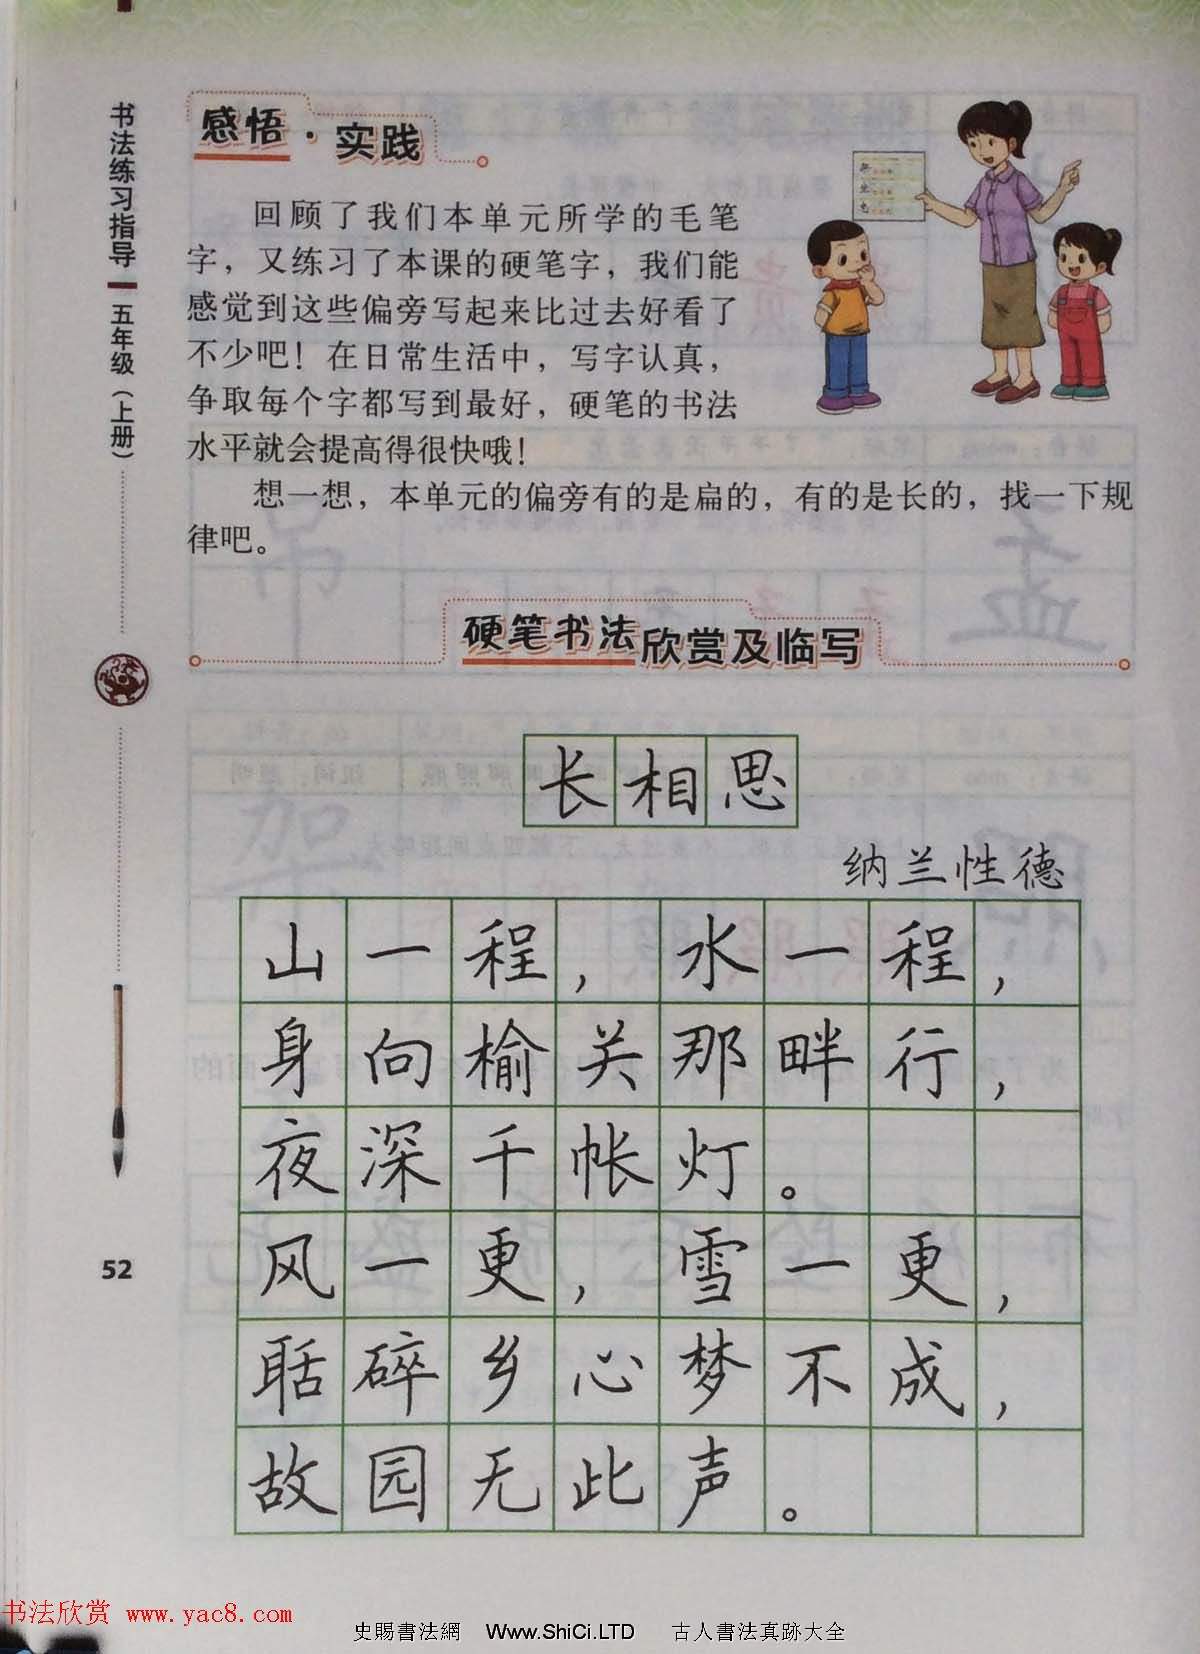 书法练习指导 五年级（上册）
感悟·实践
回顾了我们本单元所学的毛笔
字，又练习了本课的硬笔字，我们能
感觉到这些偏旁写起来比过去好看了
不少吧！在日常生活中，写字认真，
争取每个字都写到最好，硬笔的书法
水平就会提高得很快哦！
想一想，本单元的偏旁有的是扁的，有的是长的，找一下规
律吧。
硬笔书法欣赏及临写
长相思
纳兰性德
山一程，水一程，
身向榆关那畔行，
夜深千帐灯。
风一更，雪一更，
聒碎乡心梦不成，
故园无此声。
52
书法欣赏 www.yac8.com
史賜書法網 Www.ShiCi.LTD 古人書法真跡大全